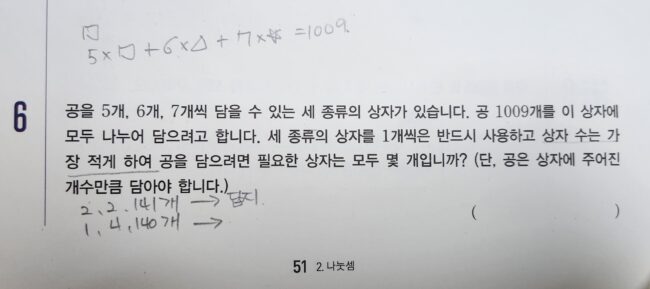 5×□+6×△+7×☆=1009.
6
공을 5개, 6개, 7개씩 담을 수 있는 세 종류의 상자가 있습니다. 공 1009개를 이 상자에
모두 나누어 담으려고 합니다. 세 종류의 상자를 1개씩은 반드시 사용하고 상자 수는 가
장 적게 하여 공을 담으려면 필요한 상자는 모두 몇 개입니까? (단, 공은 상자에 주어진
개수만큼 담아야 합니다.)
2, 2, 141개 → 답지
1, 4, 140개 →
( )
51 2. 나눗셈